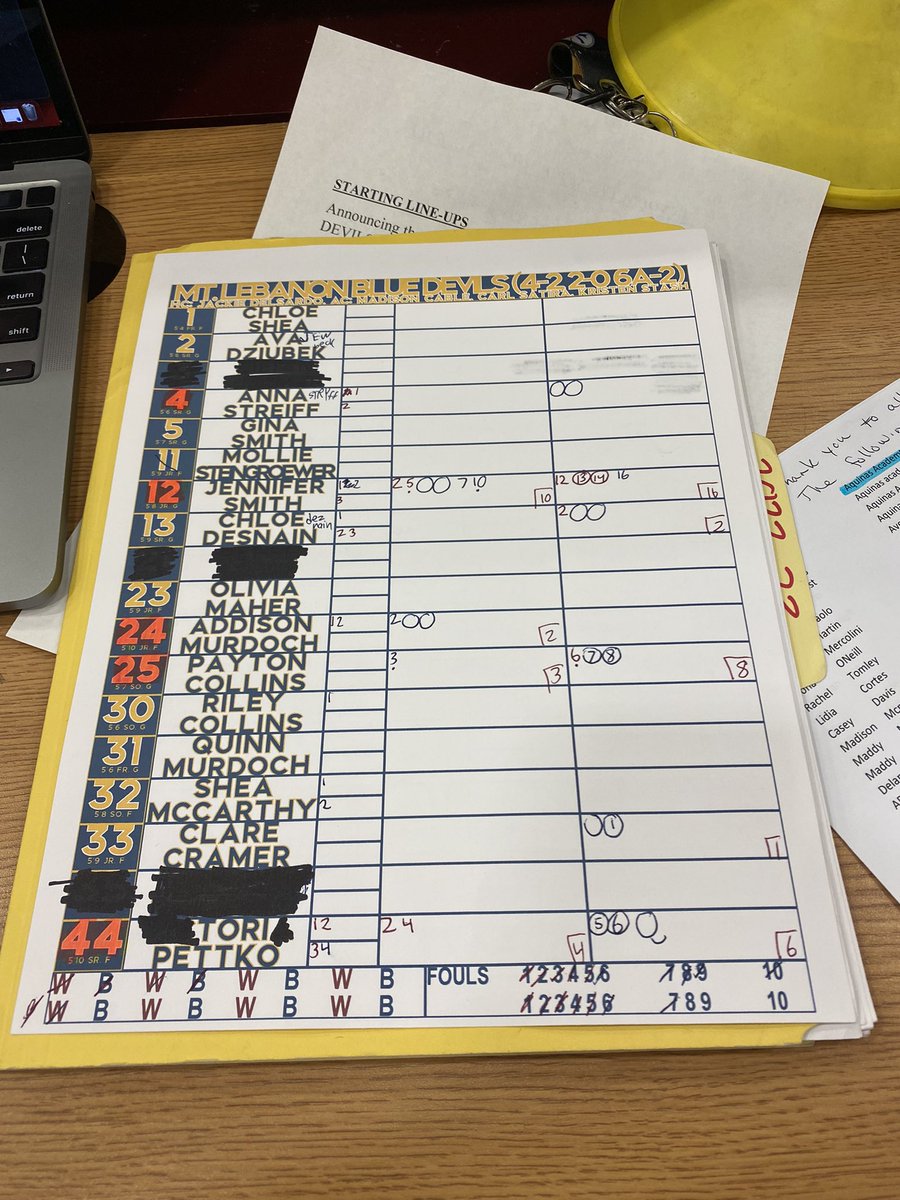 delete
return
shift
STARTING LINE-UPS
Announcing th
DEVILS
MT. LEBANON BLUE DEVILS (4-2 2-0 6A-2)
HC: JACKIE DEL SARDO, AC: MADISON CABLE, CARL SATIRA, KRISTEN STASH
1 CHLOE
5'4 FR. F SHEA
2 AVA
5'6 SR. G DZIUBEK
4 ANNA streiff 1
5'6 SR. G STREIFF 2
5 GINA
5'7 SR. G SMITH
11 MOLLIE
5'9 JR. F STENGROEWER
12 JENNIFER 2 5 7 10 12 13 14 16
5'8 JR. G SMITH 3 10 16
13 CHLOE dez 1 2
5'9 SR. G DESNAIN nain 2 3 2
23 OLIVIA
5'9 JR. F MAHER
24 ADDISON 12 2
5'10 JR. F MURDOCH 2
25 PAYTON 3 6 7 8
5'7 SO. G COLLINS 3 8
30 RILEY 1
5'6 SO. G COLLINS
31 QUINN
5'6 FR. G MURDOCH
32 SHEA 1
5'8 SO. F MCCARTHY 2
33 CLARE 1
5'9 JR. F CRAMER 1
44 TORI 12 2 4 5 6
5'10 SR. F PETTKO 34 4 6
W B W B W B W B FOULS 1 2 3 4 5 6 7 8 9 10
W B W B W B W B 1 2 3 4 5 6 7 8 9 10
hank you to all
The followin
Aquinas Academ
Aquinas acad
Aquinas A
Aquinas
Ave
aolo
artin
Mercolini
ONeill
Rachel Tomley
Lidia Cortes
Casey Davis
Madison McS
Maddy
Maddy
Delan